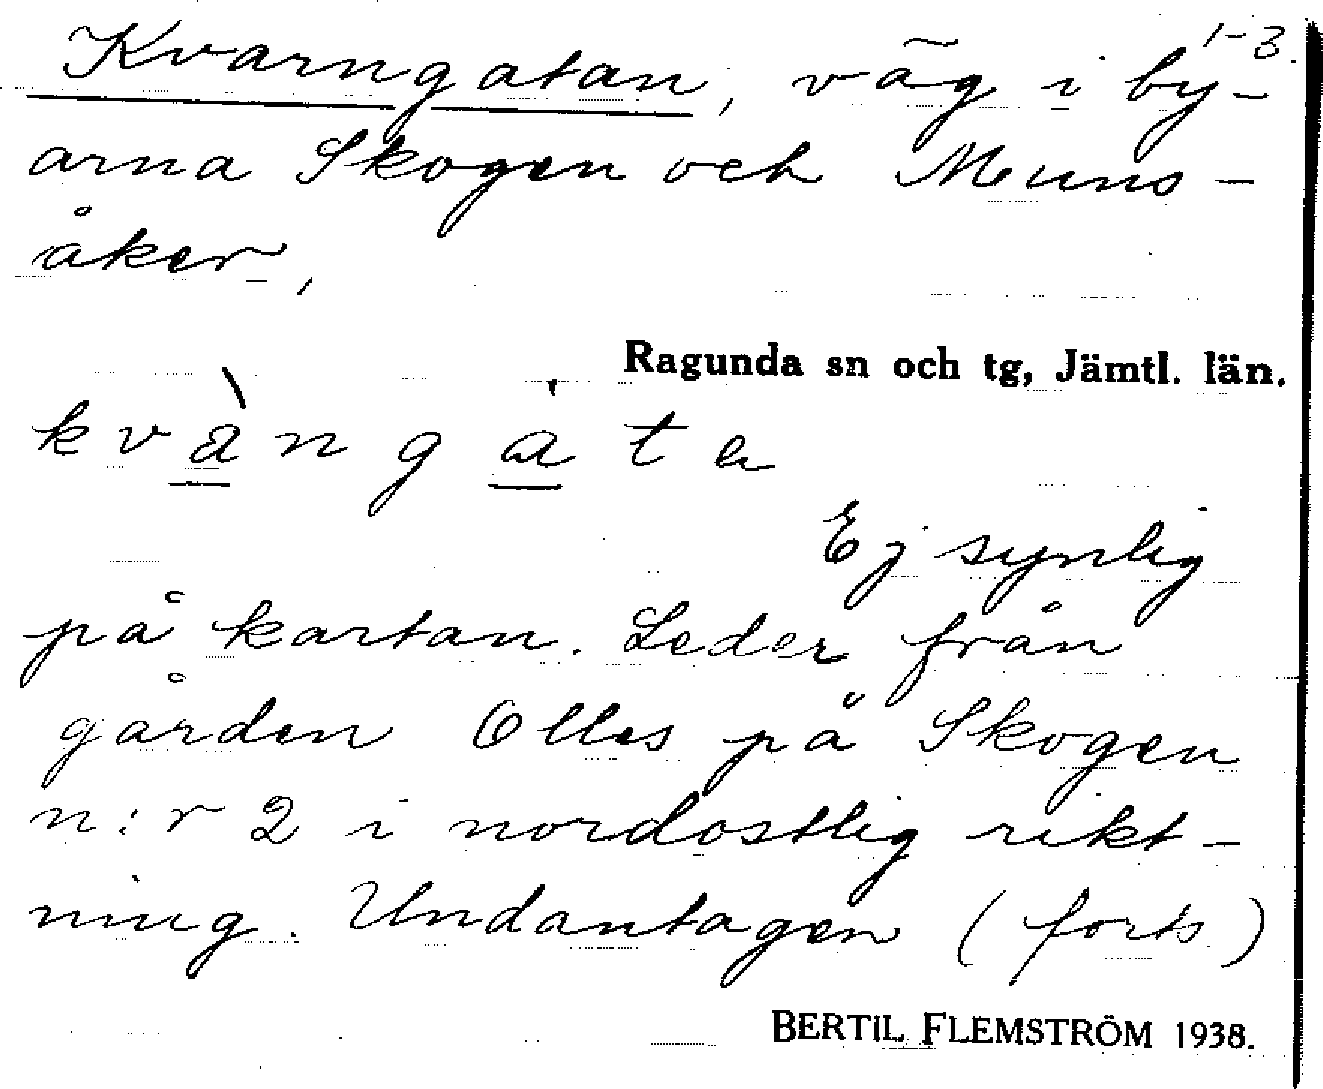 1-3.
Kvarngatan, väg i by-
arna Skogen och Muns-
åker,
Ragunda sn och tg, Jämtl. län.
kvàngàta
Ej synlig
på kartan. Leder från
gården Olles på Skogen
n:r 2 i nordostlig rikt-
ning. Undantagen (forts.)
BERTIL FLEMSTRÖM 1938.